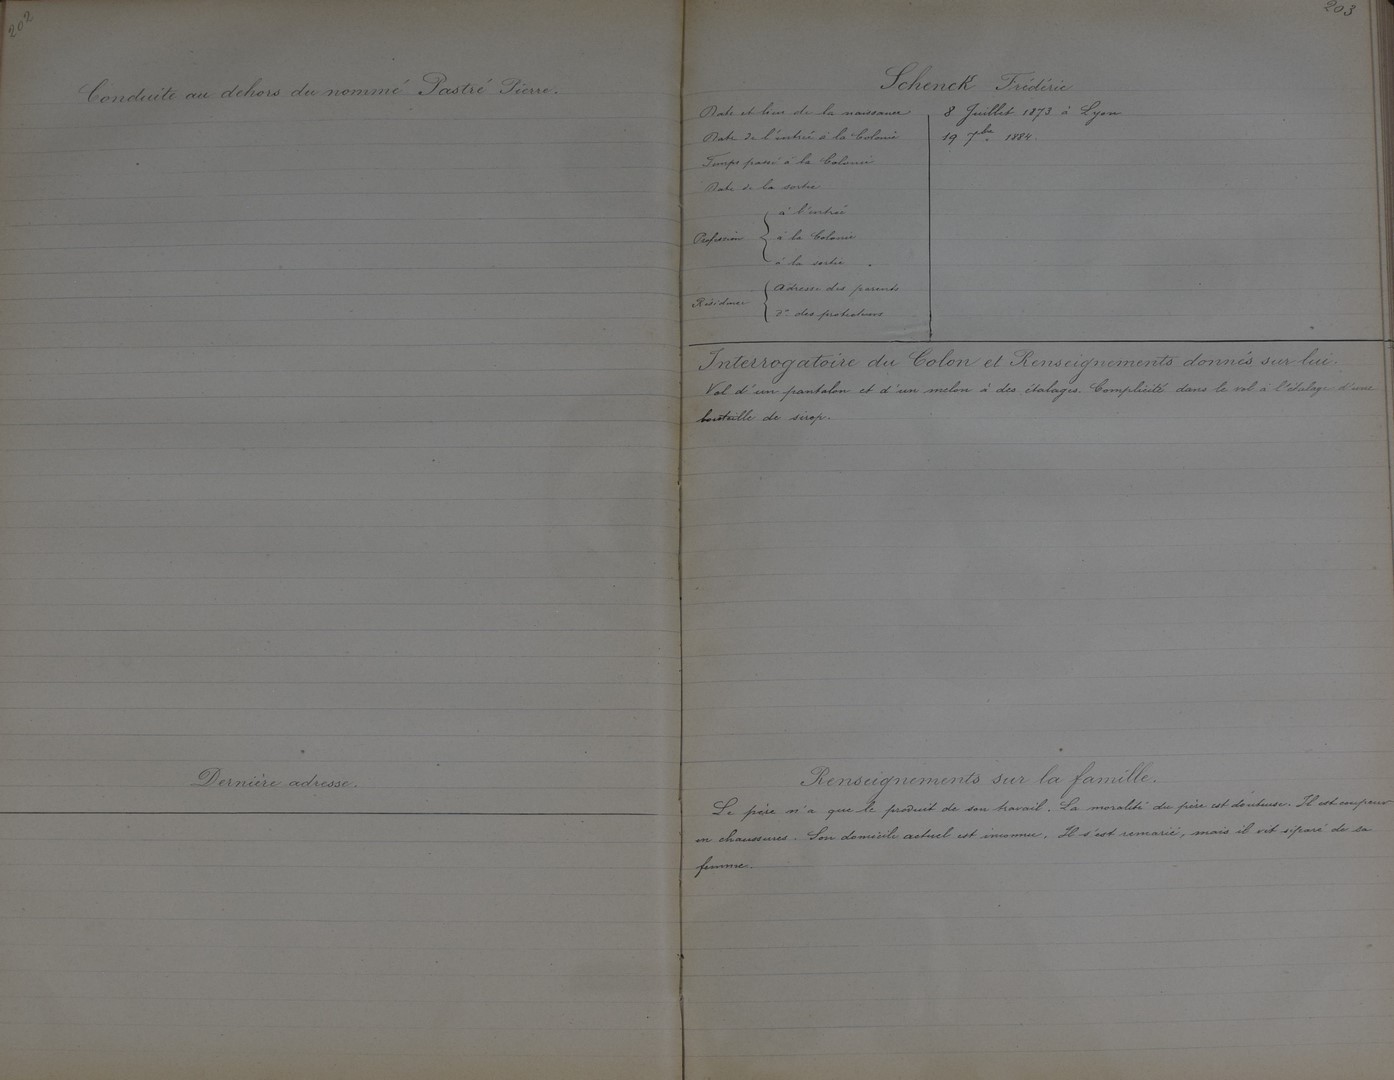 202
Conduite au dehors du nommé Pastré Pierre.
Dernière adresse.
203
Schenck Frédéric
Date et lieu de la naissance 8 Juillet 1873 à Lyon
Date de l'entrée à la Colonie 19 7bre 1884
Temps passé à la Colonie
Date de la sortie
Profession
à l'entrée
à la Colonie
à la sortie
Résidence
Adresse des parents
do des protecteurs
Interrogatoire du Colon et Renseignements donnés sur lui.
Vol d'un pantalon et d'un melon à des étalages. Complicité dans le vol à l'étalage d'une
bouteille de sirop.
Renseignements sur la famille.
Le père n'a que le produit de son travail. La moralité du père est douteuse. Il est coupeur
en chaussures. Son domicile actuel est inconnu. Il s'est remarié, mais il vit séparé de sa
femme.